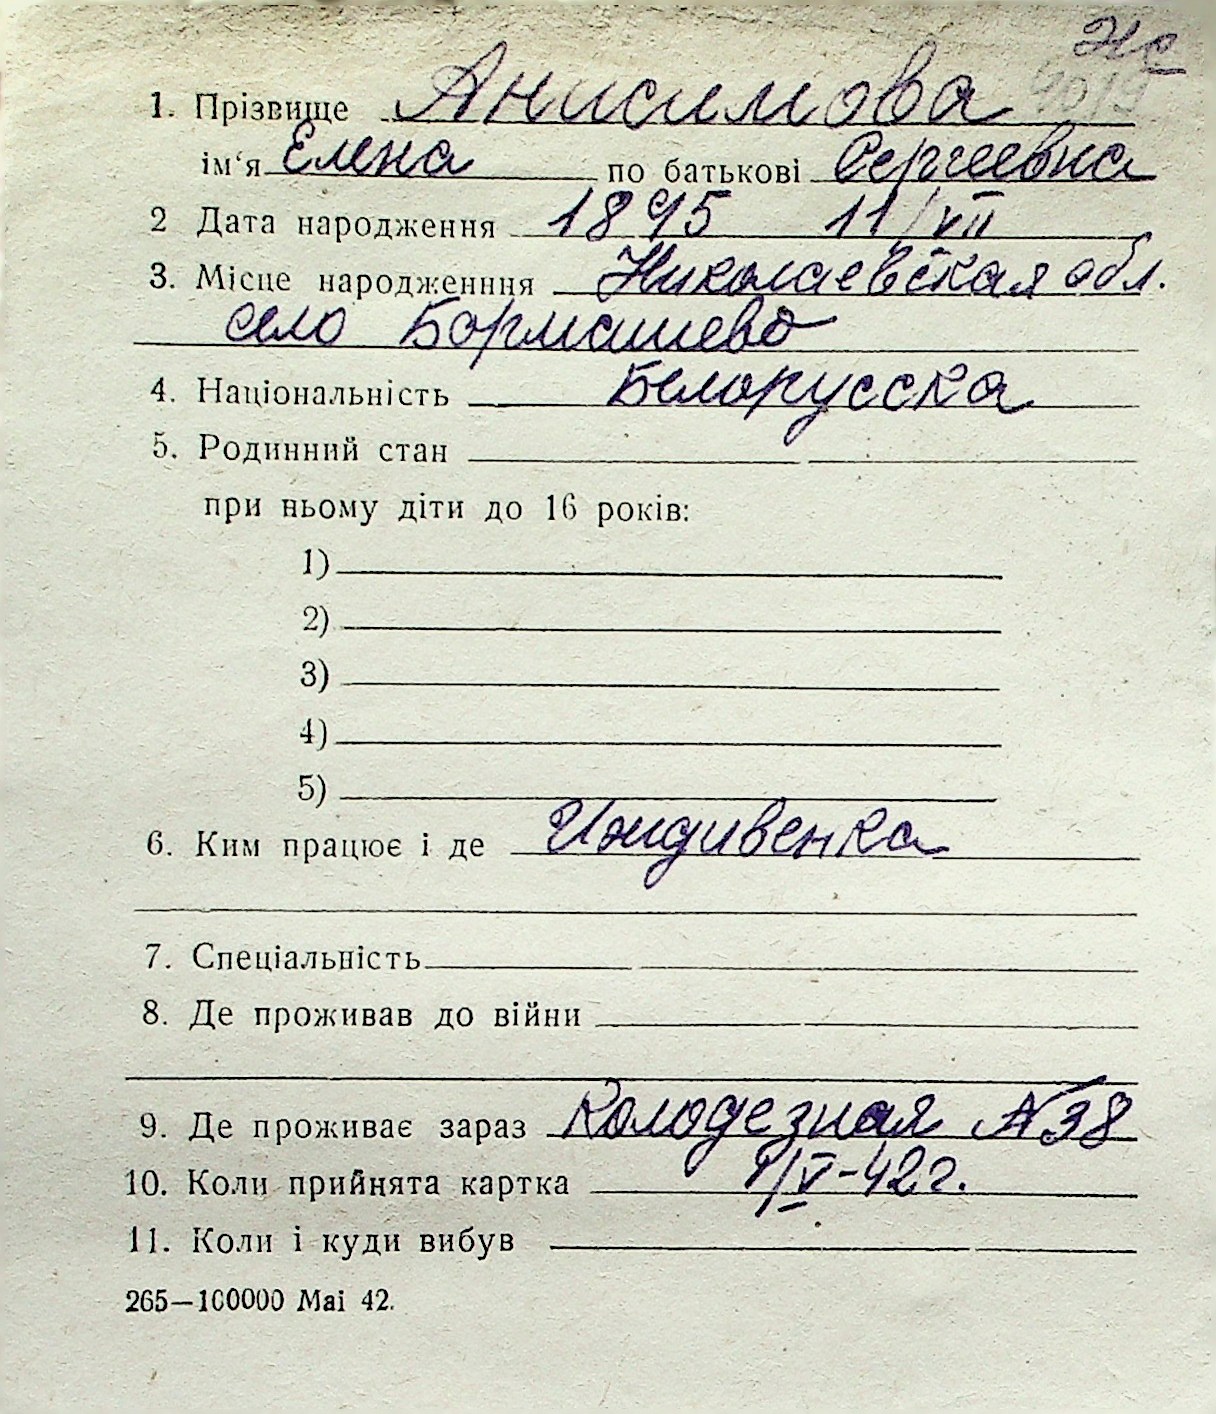 1. Прізвище Анисимова
ім‘я Елена по батькові Сергеевна
2 Дата народження 1895 11/VII
3. Місце народженння Николаевская обл.
село Бормашево
4. Національність Белорусска
5. Родинний стан
при ньому діти до 16 років:
1)
2)
3)
4)
5)
6. Ким працює і де Иждивенка
7. Спеціальність
8. Де проживав до війни
9. Де проживає зараз Колодезная №38
10. Коли прийнята картка 9/V-42г.
11. Коли і куди вибув
265—100000 Mai 42.